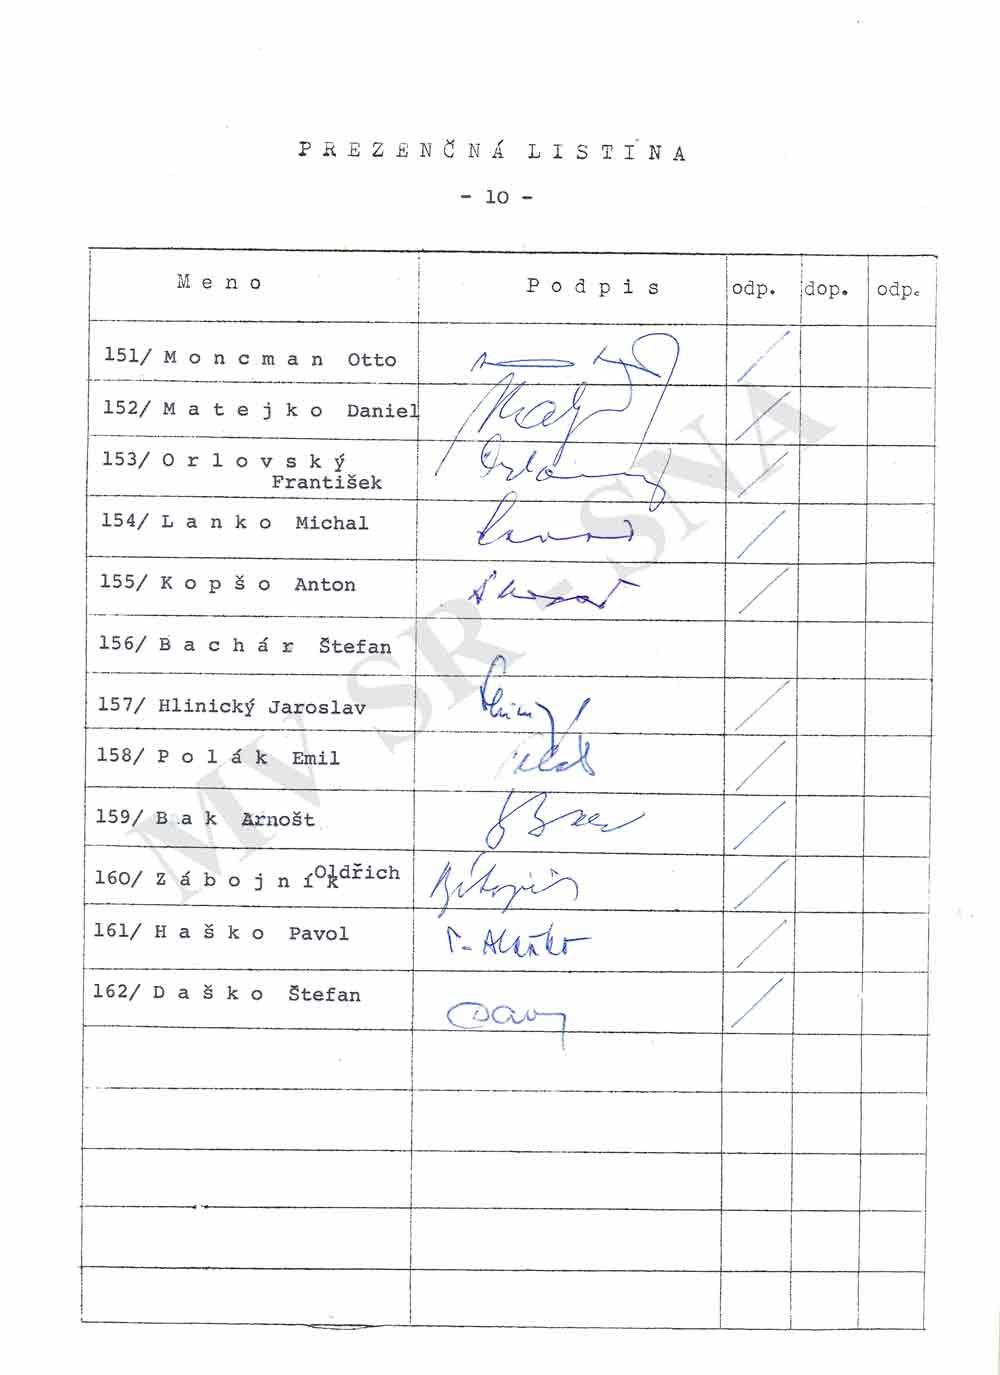 PREZENČNÁ LISTINA
- 10 -
Meno Podpis odp. dop. odp.
151/ Moncman Otto
152/ Matejko Daniel
153/ Orlovský
František
154/ Lanko Michal
155/ Kopšo Anton
156/ Bachár Štefan
157/ Hlinický Jaroslav
158/ Polák Emil
159/ Bak Arnošt
160/ Zábojník Oldřich
161/ Haško Pavol
162/ Daško Štefan
MV SR - SNA